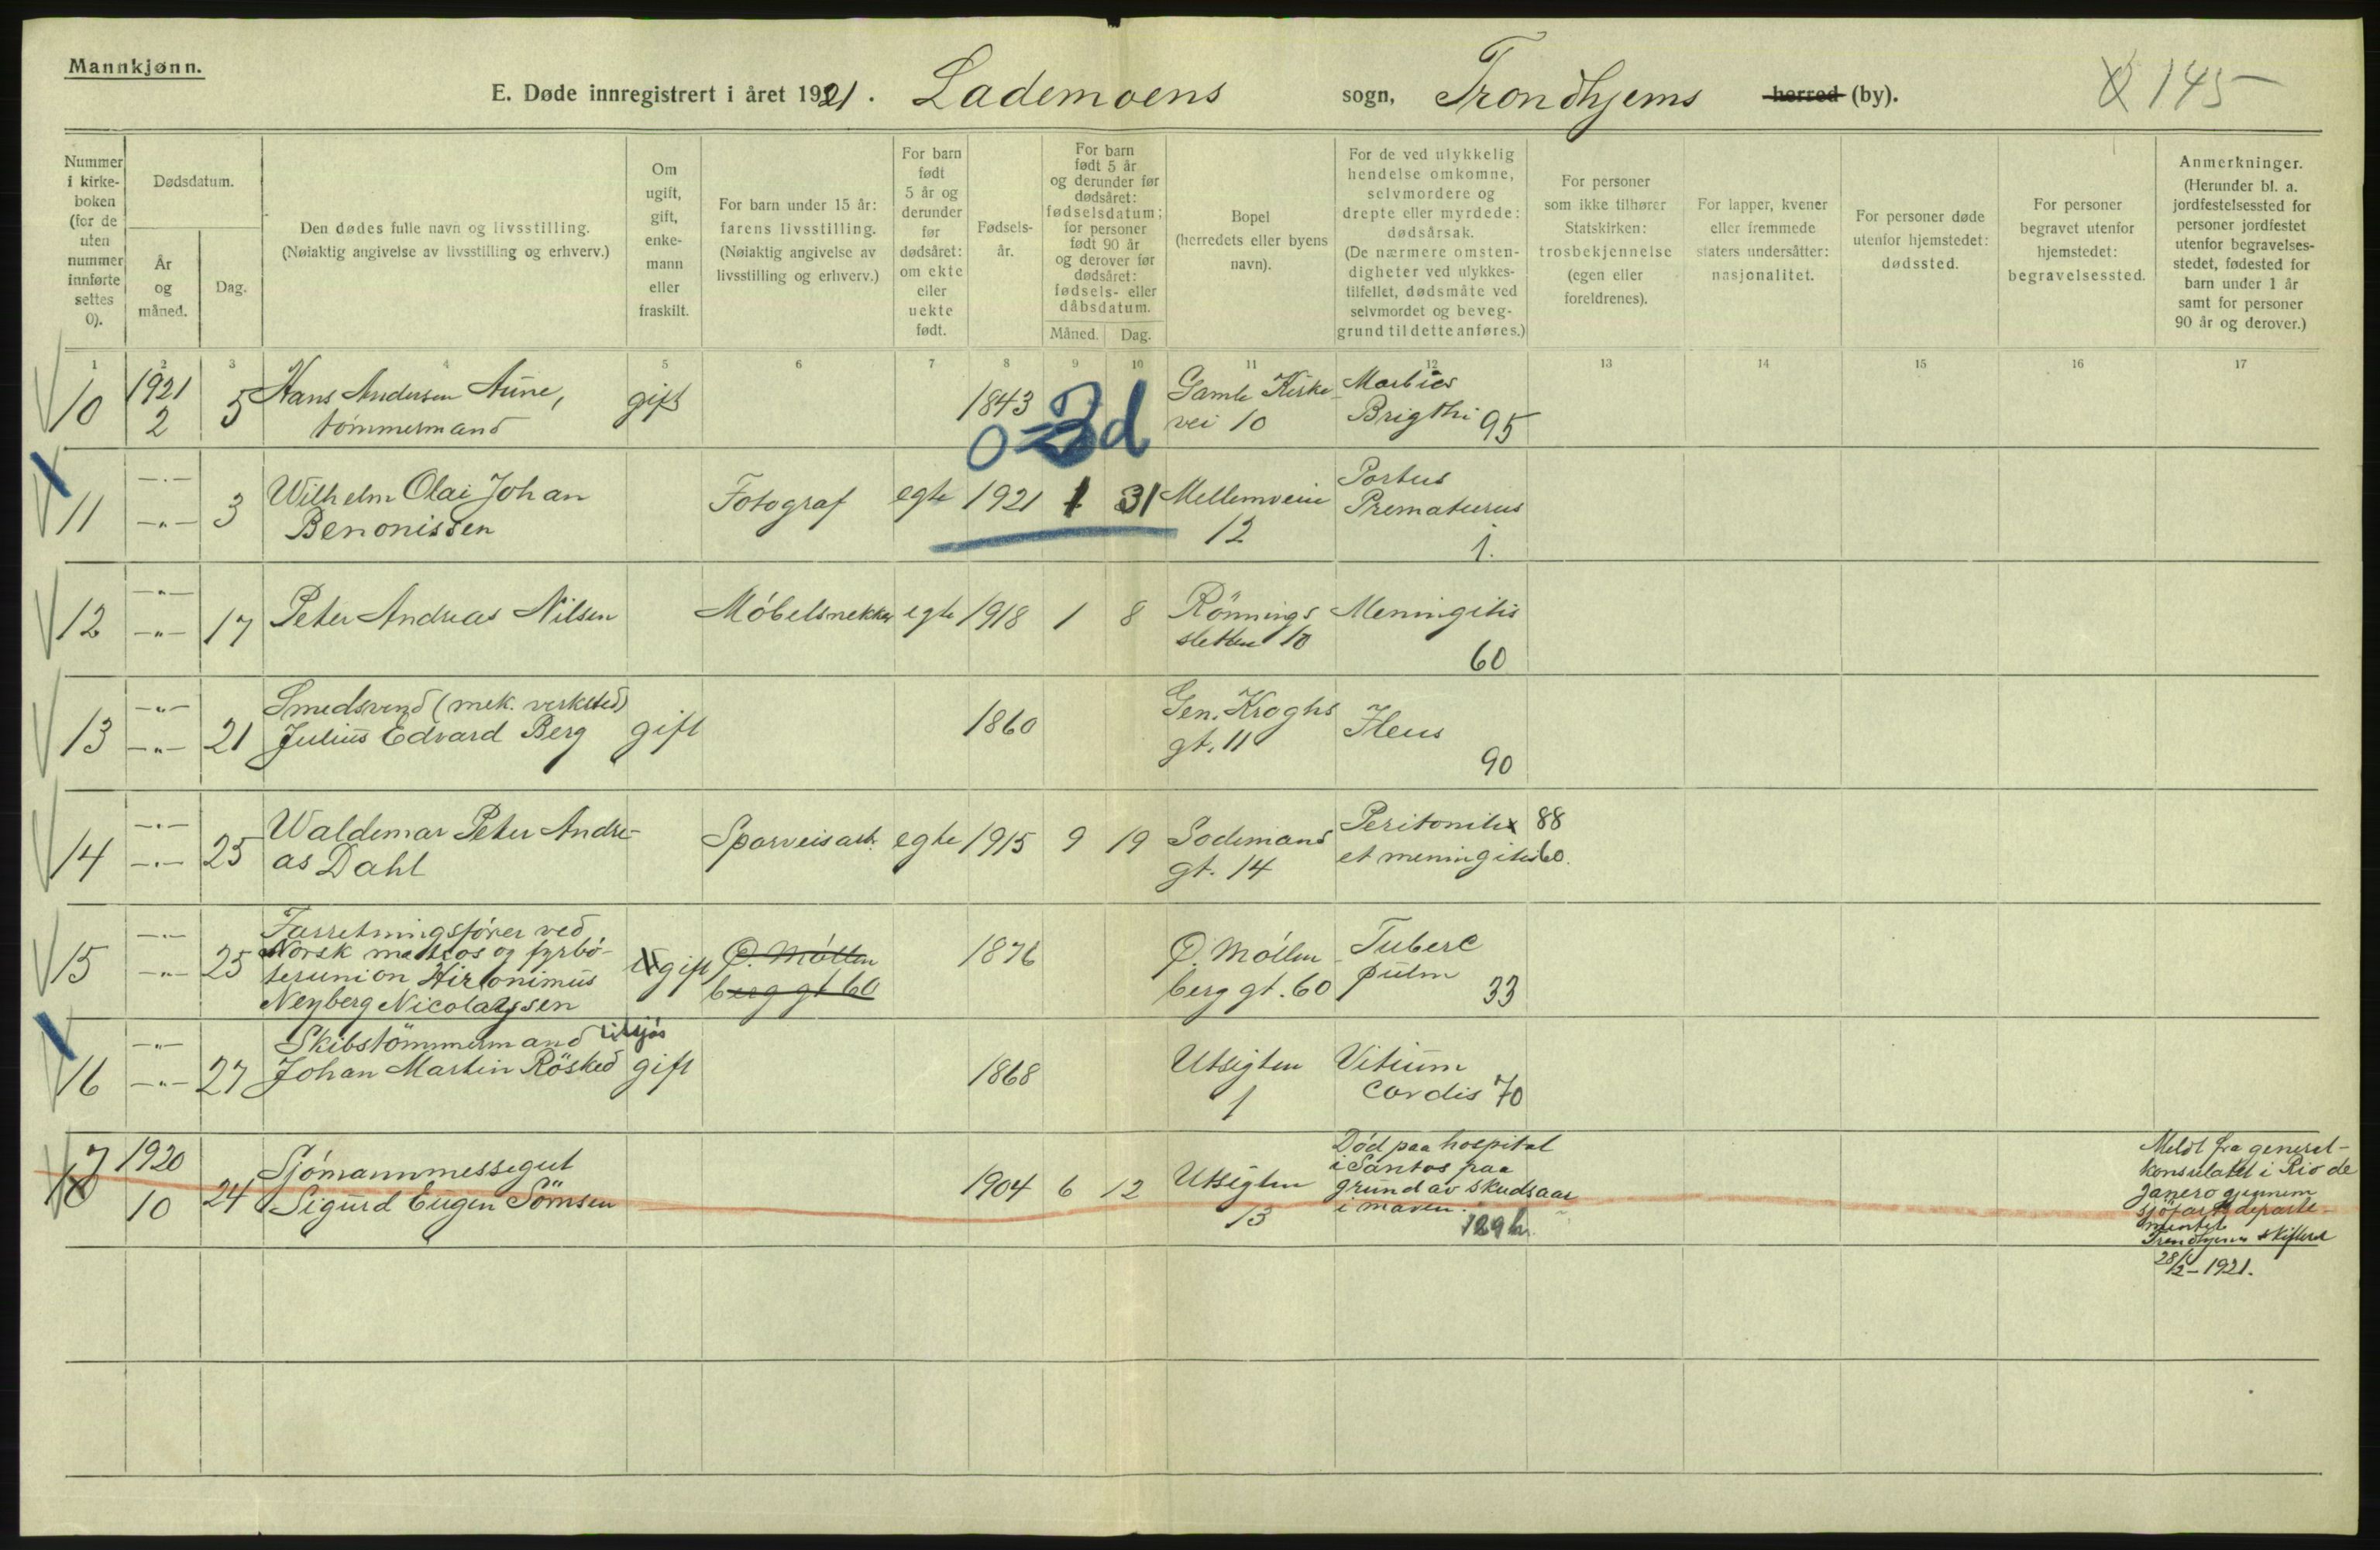 Mannkjønn.
E. Døde innregistrert i året 1921. Lademoens sogn, Trondhjems herred (by).
145
Nummer i kirke-boken (for de uten nummer innførte settes 0).
Dødsdatum.
År og måned.
Dag.
Den dødes fulle navn og livsstilling. (Nøiaktig angivelse av livsstilling og erhverv.)
Om ugift, gift, enke-mann eller fraskilt.
For barn under 15 år: farens livsstilling. (Nøiaktig angivelse av livsstilling og erhverv.)
For barn født 5 år og derunder før dødsåret: om ekte eller uekte født.
Fødsels-år.
For barn født 5 år og derunder før dødsåret: fødselsdatum; for personer født 90 år og derover før dødsåret: fødsels- eller dåbsdatum.
Måned. Dag.
Bopel (herredets eller byens navn).
For de ved ulykkelig hendelse omkomne, selvmordere og drepte eller myrdede: dødsårsak. (De nærmere omsten-digheter ved ulykkes-tilfellet, dødsmåte ved selvmordet og beveg-grund til dette anføres.)
For personer som ikke tilhører Statskirken: trosbekjennelse (egen eller foreldrenes).
For lapper, kvener eller fremmede staters undersåtter: nasjonalitet.
For personer døde utenfor hjemstedet: dødssted.
For personer begravet utenfor hjemstedet: begravelsessted.
Anmerkninger. (Herunder bl. a. jordfestelsessted for personer jordfestet utenfor begravelses-stedet, fødested for barn under 1 år samt for personer 90 år og derover.)
1 2 3 4 5 6 7 8 9 10 11 12 13 14 15 16 17
10 1921 2 5 Hans Andersen Aune, gift 1843 Gamle Kirke- Morbus
tömmermand vei 10 Brigthi 95
0 3d
11 —"— —"— 3 Wilhelm Olai Johan Fotograf egte 1921 1 31 Mellemveien Partus
Benonissen 12 Prematurus
1.
12 —"— —"— 17 Peter Andreas Nilsen Möbelsnekker egte 1918 1 8 Rönnings Meningitis
sletten 10 60
13 —"— —"— 21 Smedsvend (mek. verksted) Gen. Kroghs
Julius Edvard Berg gift 1860 gt. 11 Ileus
90
14 —"— —"— 25 Waldemar Peter Andre- Sporveisarb. egte 1915 9 19 Sodemans Peritonitis 88
as Dahl gt. 14 et meningitis 60.
15 —"— —"— 25 Forretningsförer ved
Norsk matros og fyrbö- Ugift Ø. Möllen 1876 Ø. Möllen- Tuberc
terunion Hironimus berg gt 60 berg gt. 60 pulm 33
Neyberg Nicolaysen
16 —"— —"— 27 Skibstömmermand tilsjös Utsigten Vitium
Johan Martin Rösted gift 1868 1 cordis 70
17 1920 10 24 Sjömannmessegut 1904 6 12 Utsigten 13 Död paa hospital
Sigurd Eugen Sömsen i Santos paa
grund av skudsaar
i maven.
129
Meldt fra general-
konsulatet i Rio de
Janero gjennem
sjöfartsdeparte-
mentet
Trondhjems skifteret
28/2-1921.